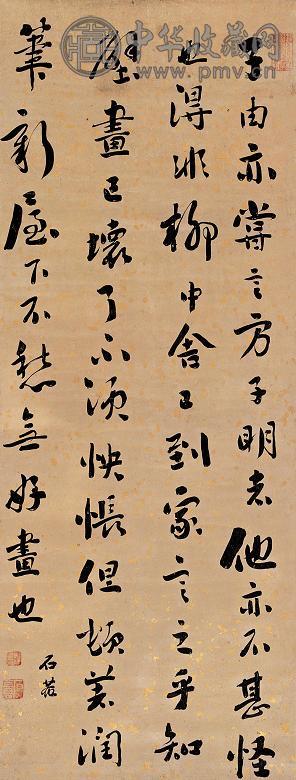 中华收藏网
www.pmv.cn
由亦嘗言方子明者他亦不甚怪
也得非柳中舍已到家言之乎知
壁畫已壞了不須怏悵但頓著潤
筆新屋下不愁無好畫也
石菴